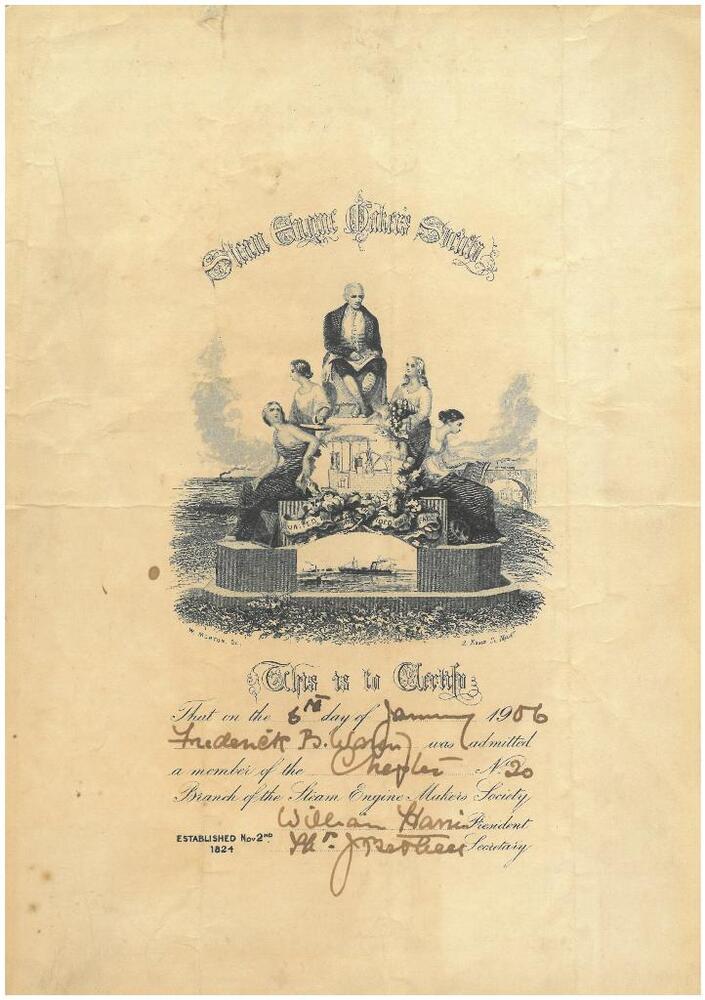 Steam Engine Makers Society
UNITED
W. MORTON, Sc.
This is to Certify
That on the 6th day of January 1906
Frederick B. was admitted
a member of the No. 20
Branch of the Steam Engine Makers Society
William Harris President
Secretary
ESTABLISHED Nov 2ND
1824